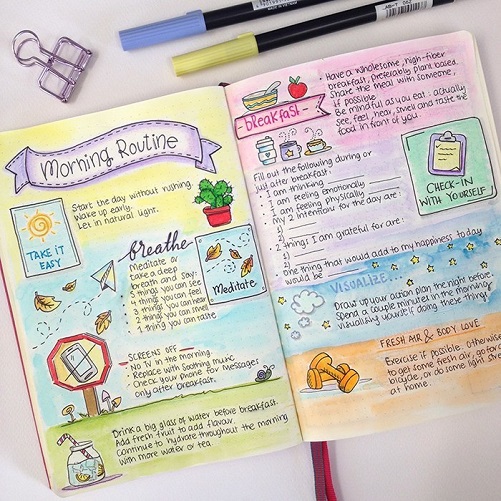 Morning Routine
Start the day without rushing.
Wake up early.
Let in natural light.
TAKE IT
EASY
breathe
Meditate or
take a deep
breath and say:
5 things you can see
4 things you can feel
3 things you can hear
2 things you can smell
1 thing you can taste
Meditate
SCREENS OFF
• No TV in the morning.
• Replace with soothing music.
• Check your phone for messages
only after breakfast.
Drink a big glass of water before breakfast.
Add fresh fruit to add flavour.
Continue to hydrate throughout the morning
with more water or tea.
• Have a wholesome, high-fiber
breakfast, preferably plant based.
Share the meal with someone,
if possible.
Be mindful as you eat: actually
see, feel, hear, smell and taste the
food in front of you.
-breakfast-
Fill out the following during or
just after breakfast:
• I am thinking
• I am feeling emotionally
• I am feeling physically
• My 2 intentions for the day are:
1)
2)
• 2 things I am grateful for are:
1)
2)
• one thing that would add to my happiness today
would be
CHECK-IN
WITH YOURSELF
VISUALIZE...
Draw up your action plan the night before
Spend a couple minutes in the morning
visualising yourself doing these things.
FRESH AIR & BODY LOVE
Exercise if possible, otherwise
to get some fresh air, go for
bicycle, or do some light
at home.